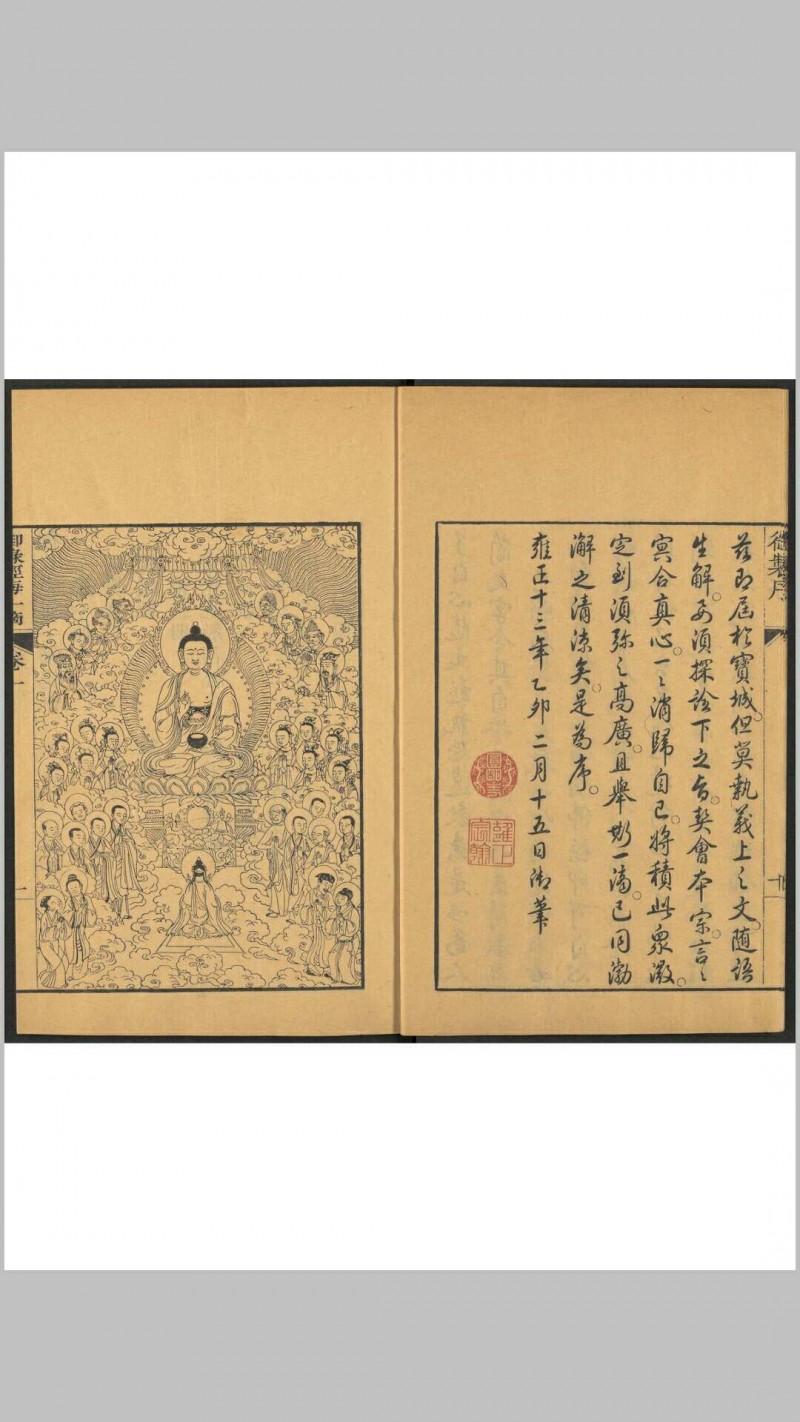 御製序
茲即屆於寶城。但莫執義上之文。随語
生解。要須探詮下之旨。契會本宗。言〻
冥合真心。一〻消歸自己。將積此衆微。
定到須彌之高廣。且舉斯一滴。已同渤
澥之清涼矣。是為序。
雍正十三年乙卯二月十五日御筆
雍正宸翰
御錄經海一滴 卷一 一